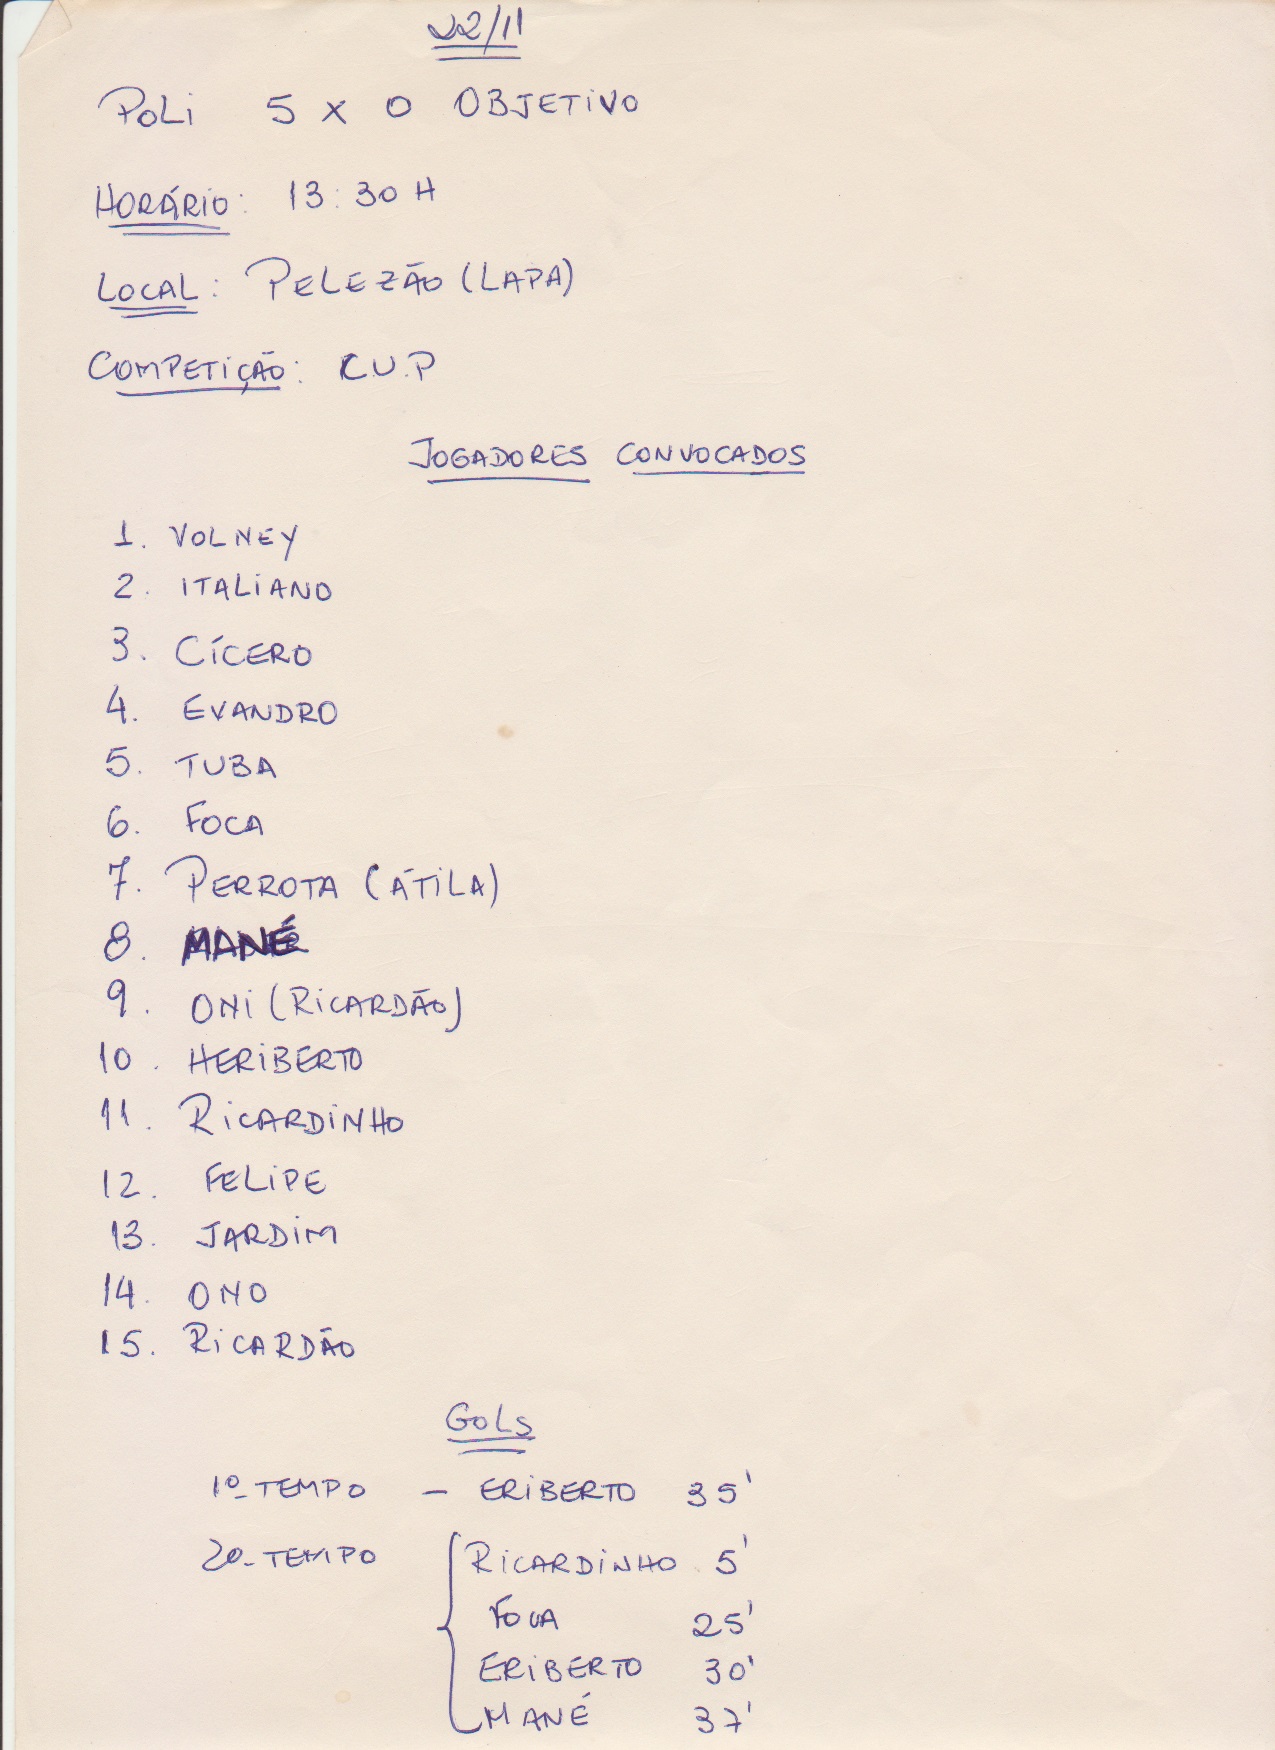 22/11
POLI 5 X 0 OBJETIVO
HORÁRIO: 13:30 H
LOCAL: PELEZÃO (LAPA)
COMPETIÇÃO: C.U.P
JOGADORES CONVOCADOS
1. VOLNEY
2. ITALIANO
3. CÍCERO
4. EVANDRO
5. TUBA
6. FOCA
7. PERROTA (ÁTILA)
8. MANÉ
9. ONI (RICARDÃO)
10. HERIBERTO
11. RICARDINHO
12. FELIPE
13. JARDIM
14. ONO
15. RICARDÃO
GOLS
1º TEMPO - ERIBERTO 35'
2º TEMPO RICARDINHO 5'
FOCA 25'
ERIBERTO 30'
MANÉ 37'